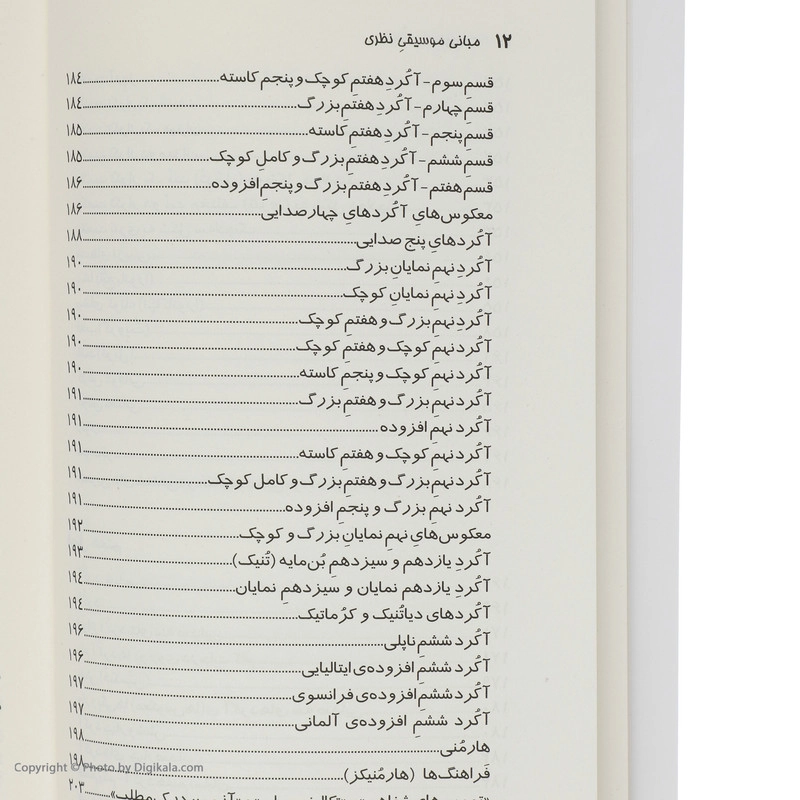 ۱۲ مبانی موسیقیِ نظری
قسم سوم - آکُردِ هفتم کوچک و پنجم کاسته ........ ۱۸٤
قسمِ چهارم - آکُردِ هفتمِ بزرگ ........ ۱۸٤
قسمِ پنجم - آکُردِ هفتمِ کاسته ........ ۱۸۵
قسمِ ششم - آکُردِ هفتمِ بزرگ و کاملِ کوچک ........ ۱۸۵
قسمِ هفتم - آکُردِ هفتمِ بزرگ و پنجمِ افزوده ........ ۱۸۶
معکوس‌هایِ آکُردهایِ چهارصدایی ........ ۱۸۶
آکُردهایِ پنج صدایی ........ ۱۸۸
آکُردِ نهمِ نمایانِ بزرگ ........ ۱۹۰
آکُردِ نهمِ نمایانِ کوچک ........ ۱۹۰
آکُردِ نهمِ بزرگ و هفتمِ کوچک ........ ۱۹۰
آکُردِ نهمِ کوچک و هفتمِ کوچک ........ ۱۹۰
آکُردِ نهمِ کوچک و پنجمِ کاسته ........ ۱۹۰
آکُردِ نهمِ بزرگ و هفتمِ بزرگ ........ ۱۹۱
آکُردِ نهمِ افزوده ........ ۱۹۱
آکُردِ نهمِ کوچک و هفتمِ کاسته ........ ۱۹۱
آکُردِ نهمِ بزرگ و هفتمِ بزرگ و کامل کوچک ........ ۱۹۱
آکُردِ نهمِ بزرگ و پنجمِ افزوده ........ ۱۹۱
معکوس‌هایِ نهمِ نمایانِ بزرگ و کوچک ........ ۱۹۲
آکُردِ یازدهم و سیزدهمِ بُن‌مایه (تُنیک) ........ ۱۹۳
آکُردِ یازدهم نمایان و سیزدهمِ نمایان ........ ۱۹٤
آکُردهای دیاتُنیک و کرُماتیک ........ ۱۹٤
آکُردِ ششمِ ناپلی ........ ۱۹۶
آکُردِ ششمِ افزوده‌ی ایتالیایی ........ ۱۹۶
آکُردِ ششمِ افزوده‌ی فرانسوی ........ ۱۹۷
آکُردِ ششمِ افزوده‌ی آلمانی ........ ۱۹۷
هارمُنی ........ ۱۹۸
فَراهنگ‌ها (هارمُنیکز) ........ ۱۹۸
۲۰۳
Copyright © Photo by Digikala.com